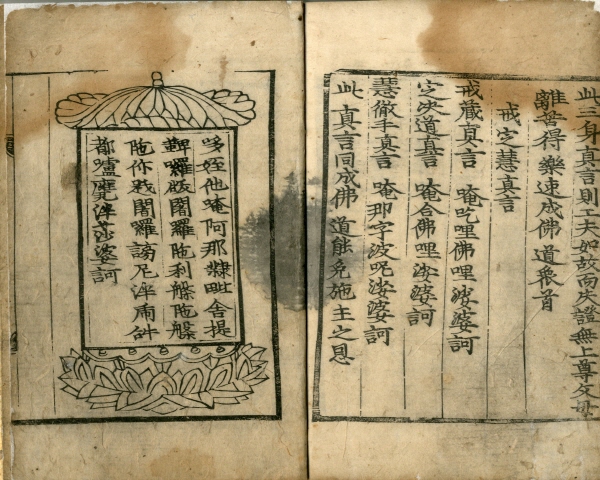 此三身真言則工夫如故而失證無上尊父母
離苦得樂速成佛道衆首
戒定慧真言
戒藏真言 唵吃哩佛哩娑婆訶
定決道真言 唵合佛哩娑婆訶
慧徹手真言 唵那字波呪娑婆訶
此真言同成佛道能免施主之恩
哆姪他唵阿那隸毗舍提
鞞囉跋闍羅陁利槃陁槃
陁你跋闍羅謗尼泮雨
都嚧甕泮莎婆訶